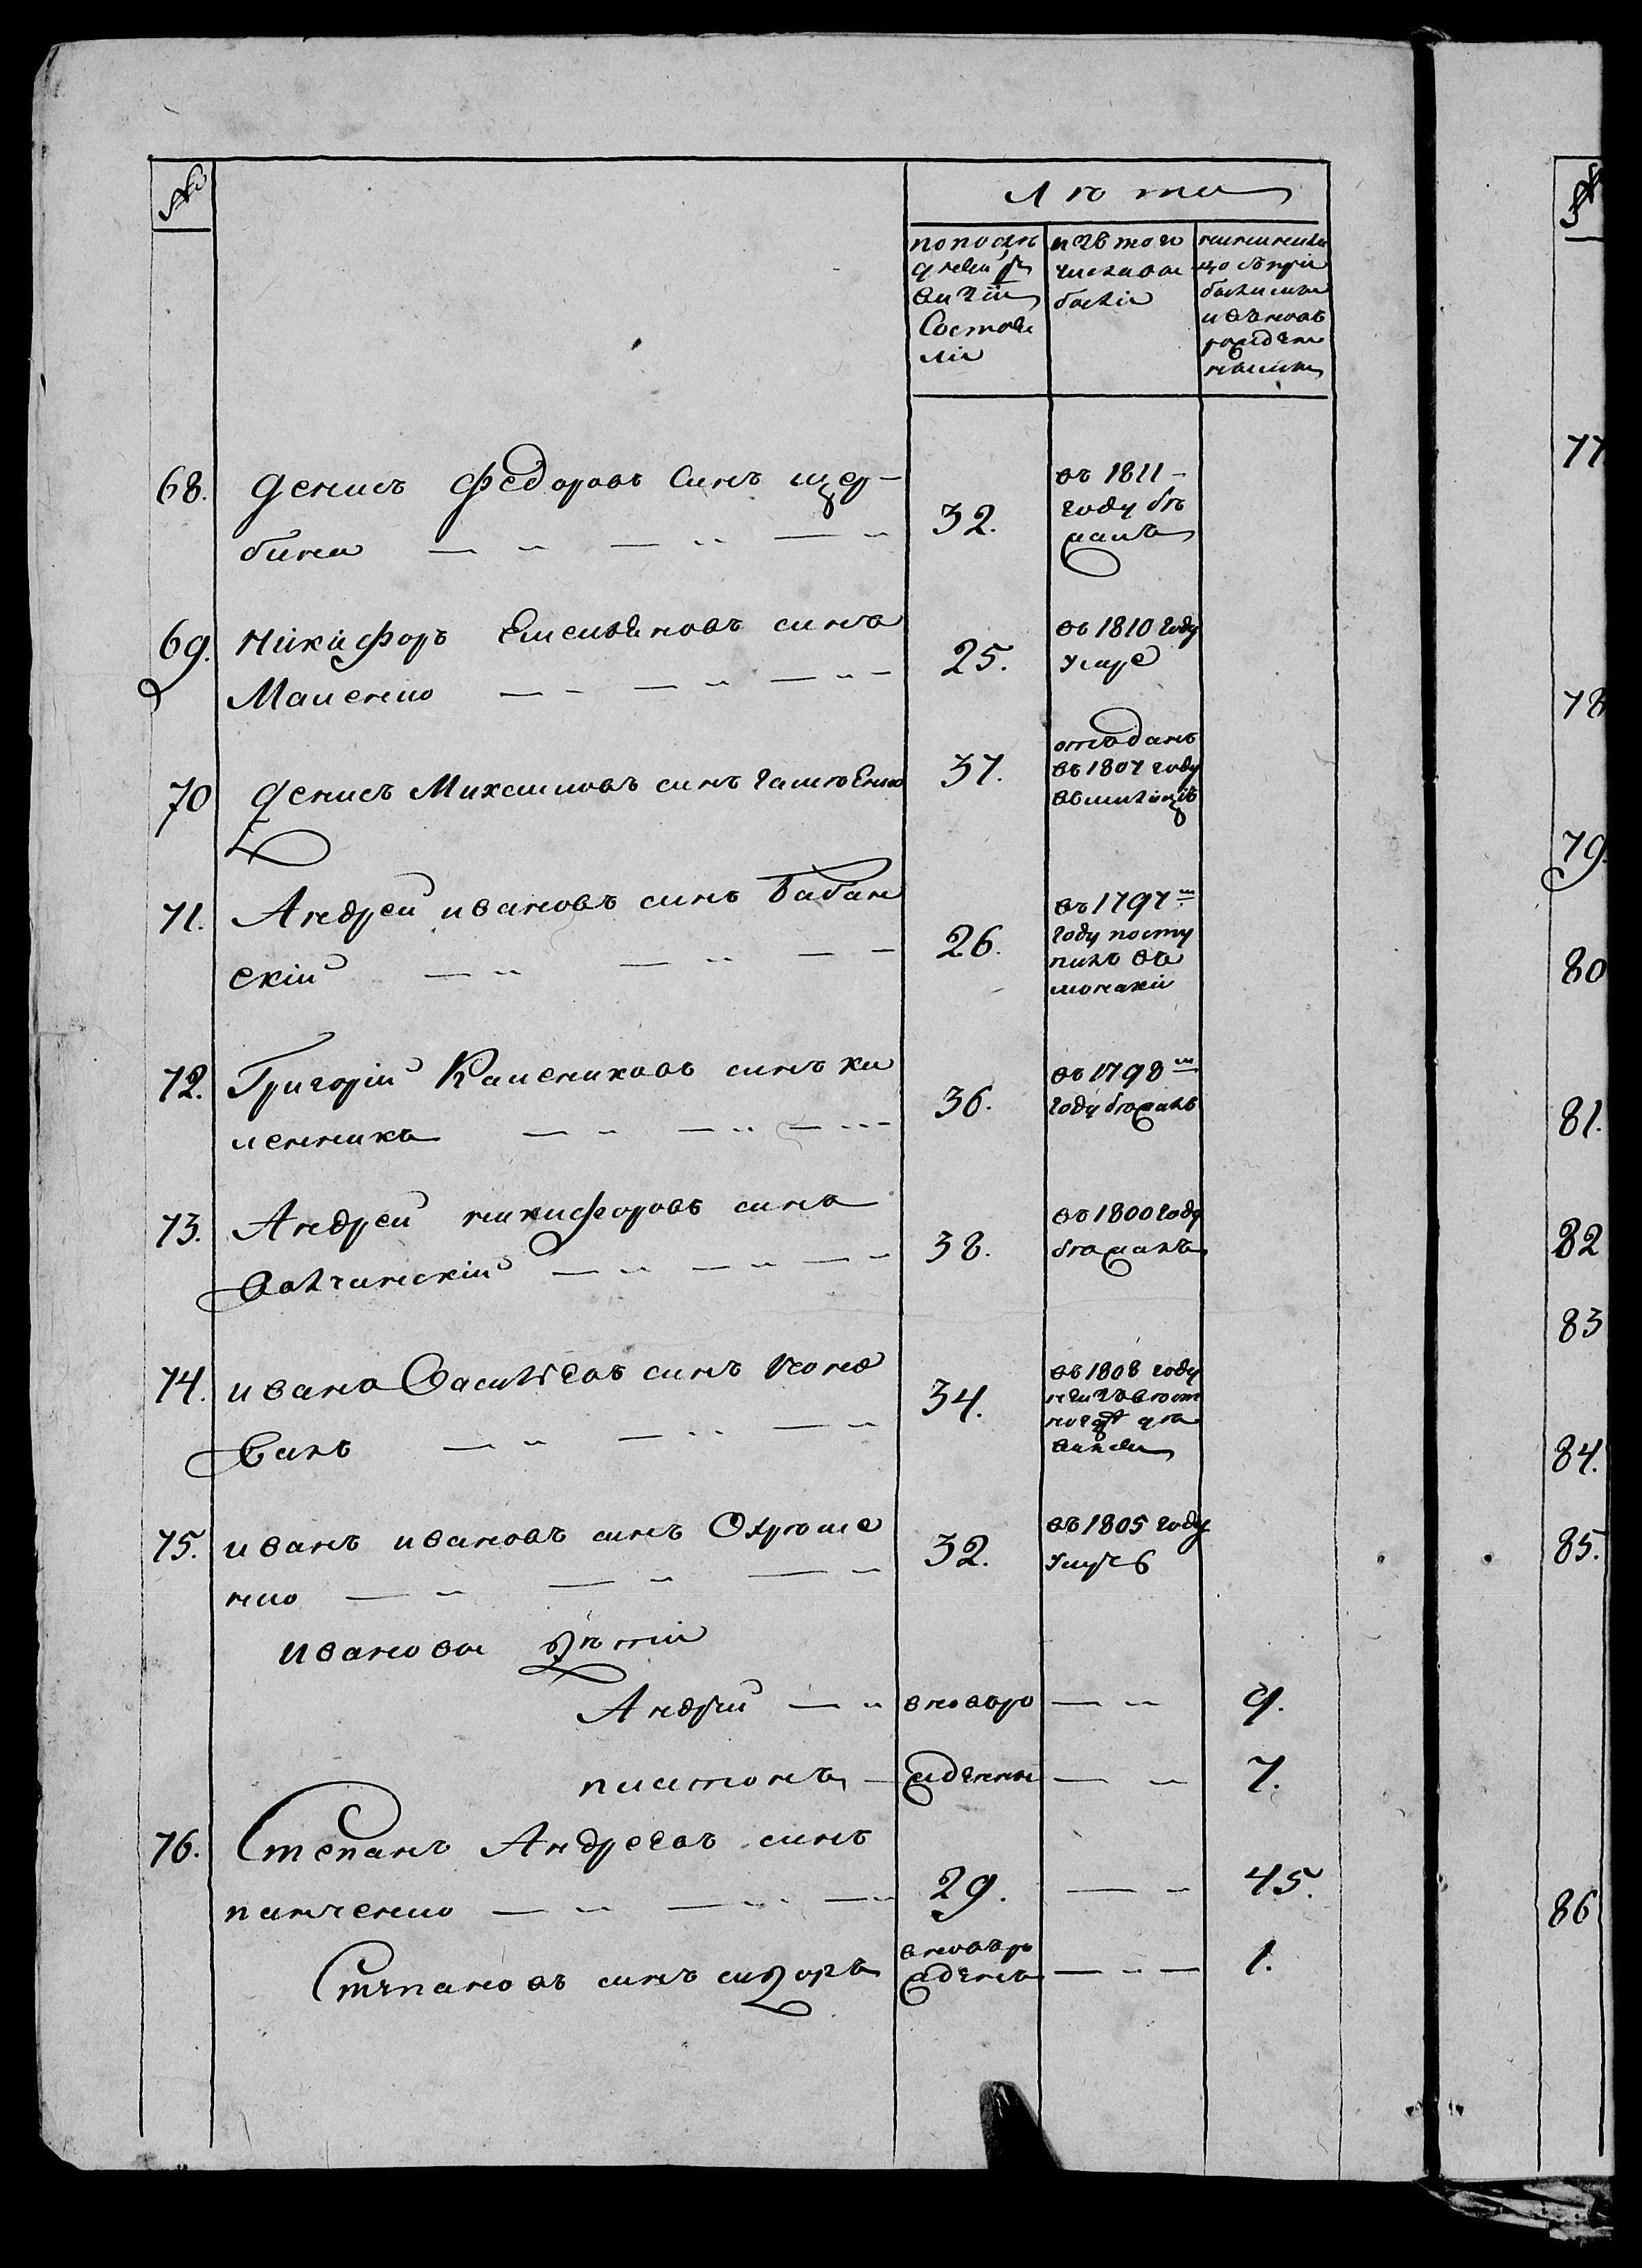 №
Лѣта
по послѣ
дней ре
визіи
Состоя
ли
изъ того
числа вы
были
68. Денисъ Федоровъ Синъ щер-
бина
32.
въ 1811
году бѣ
жалъ
69. Никифоръ Емельяновъ синъ
Маценко
25.
въ 1810 году
умре
70 Денисъ Михаиловъ синъ
37.
отъданъ
въ 1807 году
вьмилицію
71. Андрей ивановъ синъ Бабан
скій
26.
въ 1797м
году посту
пилъ въ
монахи
72. Григорій Калениковъ синъ ка
ленникъ
36.
въ 1798м
году бѣжалъ
73. Андрей никифоровъ синъ
Вовчанскій
38.
въ 1800 году
бѣжалъ
74. иванъ Васильевъ синъ Коно
валъ
34.
въ 1808 году
неизъвѣст
но гдѣ дѣ
вался
75. иванъ ивановъ синъ Охрѣме
нко
32.
въ 1805 году
умрѣ
ивановы дѣти
Андрей вновьро 9.
платонъ жденны 7.
76. Степанъ Андреевъ синъ
панченко
29. 45.
Степановъ синъ сидоръ
вновьро
жденъ
1.
№
77
78
79.
80
81.
82
83
84.
85.
86